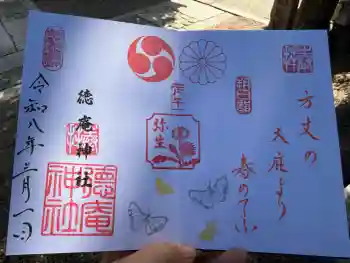 方丈の
大庇より
春のてふ
丙午
弥生
徳庵神社
徳庵神社
令和八年三月一日